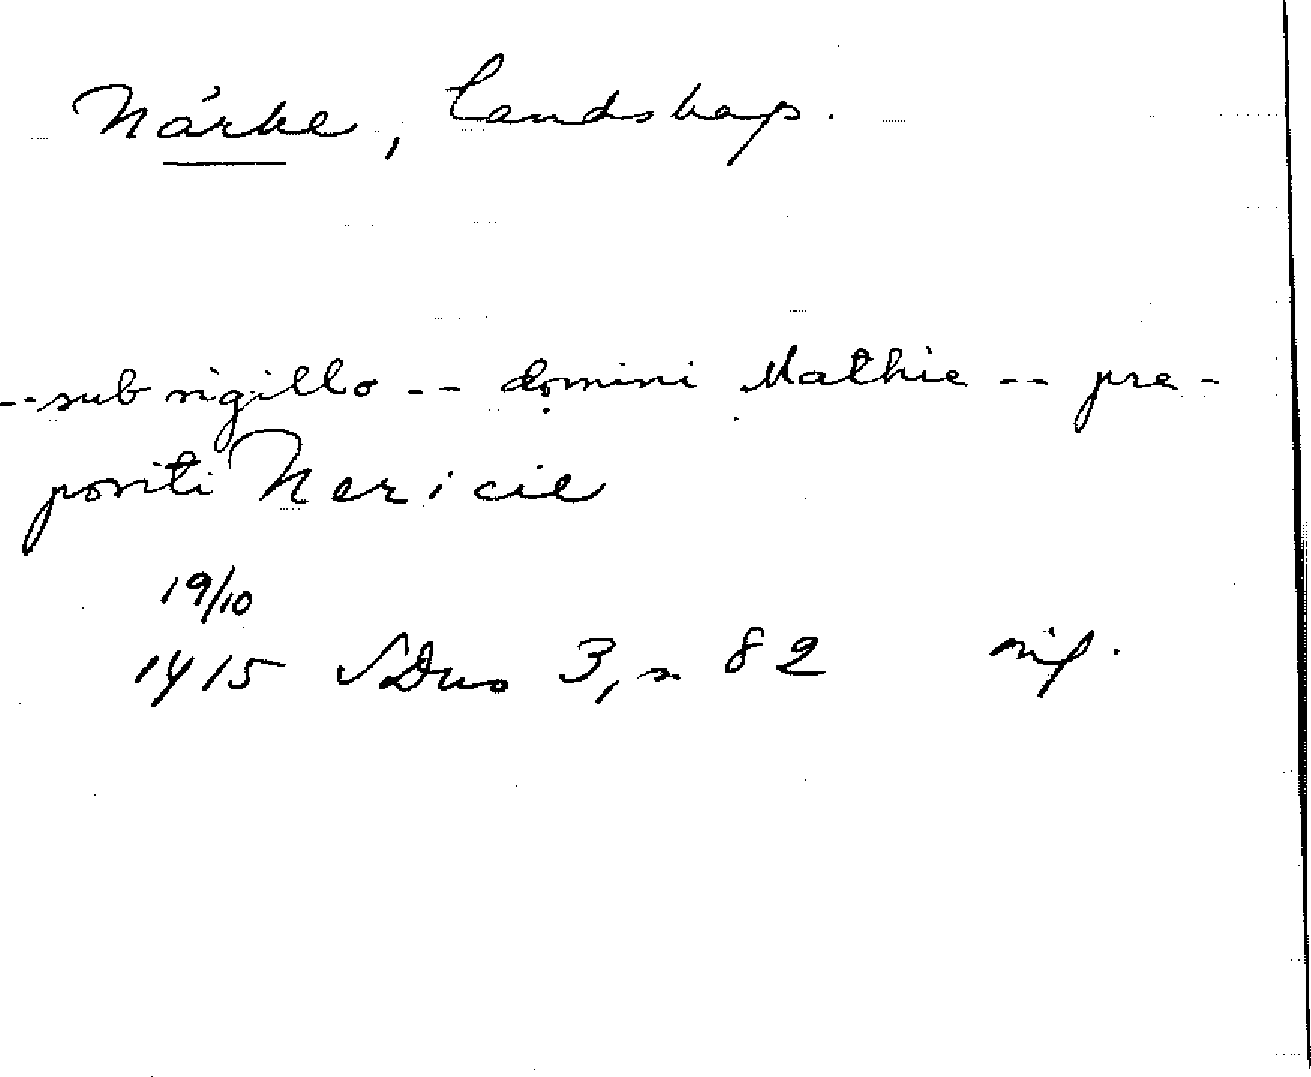 Närke, landskap.
-- sub sigillo -- domini Mathie -- pre-
positi Nericie
19/10
1415 SDns 3, s. 82 orig.